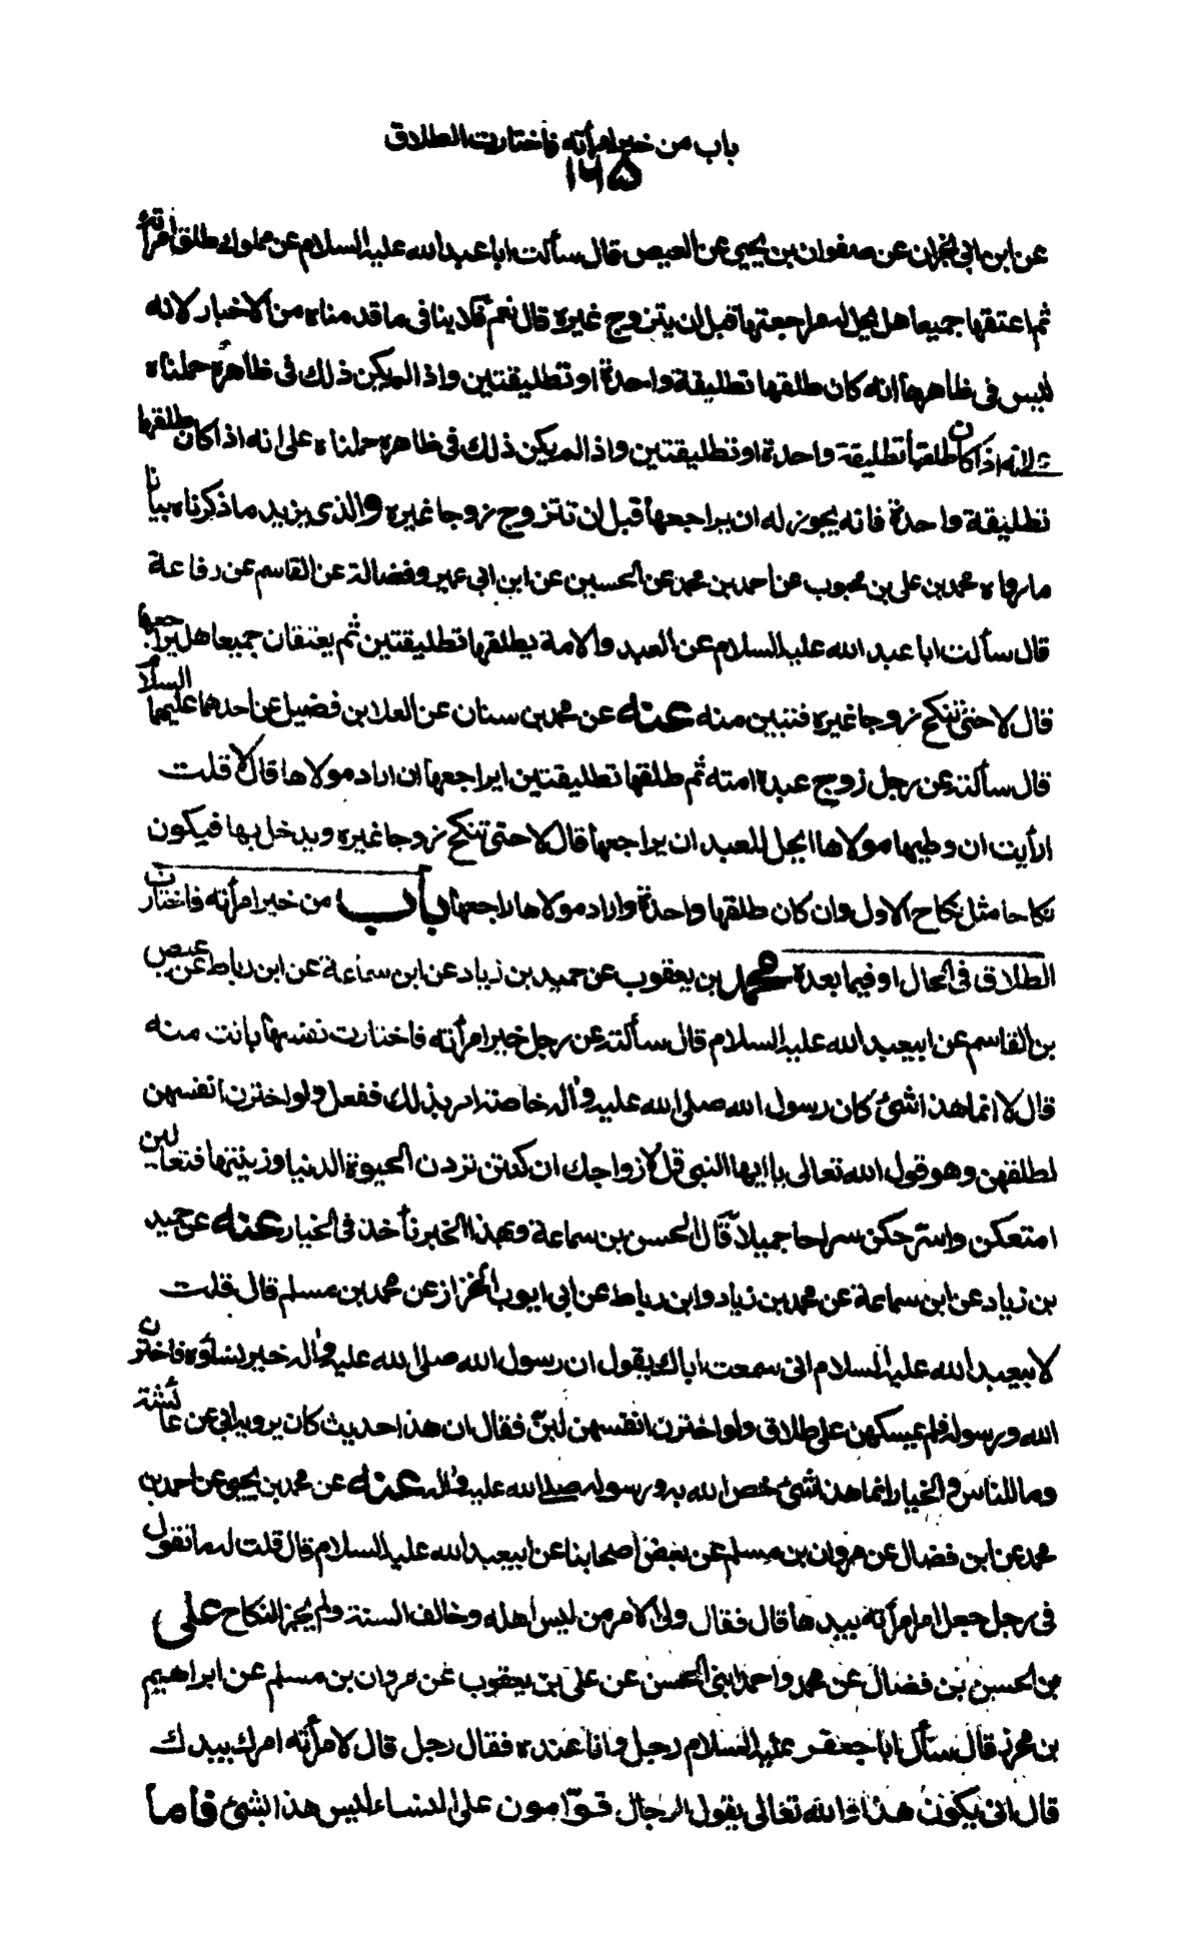 باب من خير امرأته فاختارت الطلاق
١٦٥
عن ابن ابي نجران عن صفوان بن يحيى عن العيص قال سألت ابا عبد الله عليه السلام عن مملوك طلق امرأته
ثم اعتقها جميعا هل يحل له مراجعتها قبل ان يتزوج غيره قال نعم فلا ينافى ما قدمناه من الاخبار لانه
ليس فى ظاهرها انه كان طلقها تطليقة واحدة او تطليقتين واذا لم يكن ذلك فى ظاهره حملناه
على انه اذا كان طلقها تطليقة واحدة او تطليقتين واذا لم يكن ذلك فى ظاهره حملناه على انه اذا كان طلقها
تطليقة واحدة فانه يجوز له ان يراجعها قبل ان تتزوج زوجا غيره والذى يزيد ما ذكرناه بيانا
ما رواه محمد بن على بن محبوب عن احمد بن محمد عن الحسين عن ابن ابى عمير وفضالة عن القاسم عن رفاعة
قال سألت ابا عبد الله عليه السلام عن العبد والامة يطلقها تطليقتين ثم يعتقان جميعا هل يراجعها
قال لا حتى تنكح زوجا غيره فتبين منه عنه عن محمد بن سنان عن العلا بن فضيل عن احدهما عليهما السلا
قال سألته عن رجل زوج عبده امته ثم طلقها تطليقتين ايراجعها ان اراد مولاها قال لا قلت
ارأيت ان وطيها مولاها ايحل للعبد ان يراجعها قال لا حتى تنكح زوجا غيره ويدخل بها فيكون
نكاحا مثل نكاح الاول وان كان طلقها واحدة واراد مولاها راجعها باب من خير امرأته فاختارت
الطلاق فى الحال او فيما بعده محمد بن يعقوب عن حميد بن زياد عن ابن سماعة عن ابن رباط عن عيص
بن القاسم عن ابيعبد الله عليه السلام قال سألته عن رجل خير امرأته فاختارت نفسها بانت منه
قال لا انما هذا شئ كان رسول الله صلى الله عليه واله خاصة امر بذلك ففعل ولو اخترن انفسهن
لطلقهن وهو قول الله تعالى يا ايها النبى قل لازواجك ان كنتن تردن الحيوة الدنيا وزينتها فتعالين
امتعكن واسرحكن سراحا جميلا قال الحسن بن سماعة وبهذا الخبر نأخذ فى الخيار عنه عن حميد
بن زياد عن ابن سماعة عن محمد بن زياد وابن رباط عن ابى ايوب الخزاز عن محمد بن مسلم قال قلت
لابيعبد الله عليه السلام انى سمعت اباك يقول ان رسول الله صلى الله عليه واله خير نساؤه فاخترن
الله ورسوله فلم يمسكهن على طلاق ولو اخترن انفسهن لبن فقال ان هذا حديث كان يرويه ابى عن عائشة
وما للناس والخيار انما هذا شئ خص الله به ورسوله صلى الله عليه واله عنه عن محمد بن يحيى عن احمد بن
محمد عن ابن فضال عن مروان بن مسلم عن بعض اصحابنا عن ابيعبد الله عليه السلام قال قلت له ما تقول
فى رجل جعل امر امرأته بيدها قال فقال ولى الامر من ليس اهله وخالف السنة ولم يجز النكاح على
بن الحسين بن فضال عن محمد واحمد ابنى الحسن عن على بن يعقوب عن مروان بن مسلم عن ابراهيم
بن محرز قال سأل ابا جعفر عليه السلام رجل وانا عنده فقال رجل قال لامرأته امرك بيدك
قال انى يكون هذا والله تعالى يقول الرجال قوّامون على النساء ليس هذا بشئ فاما